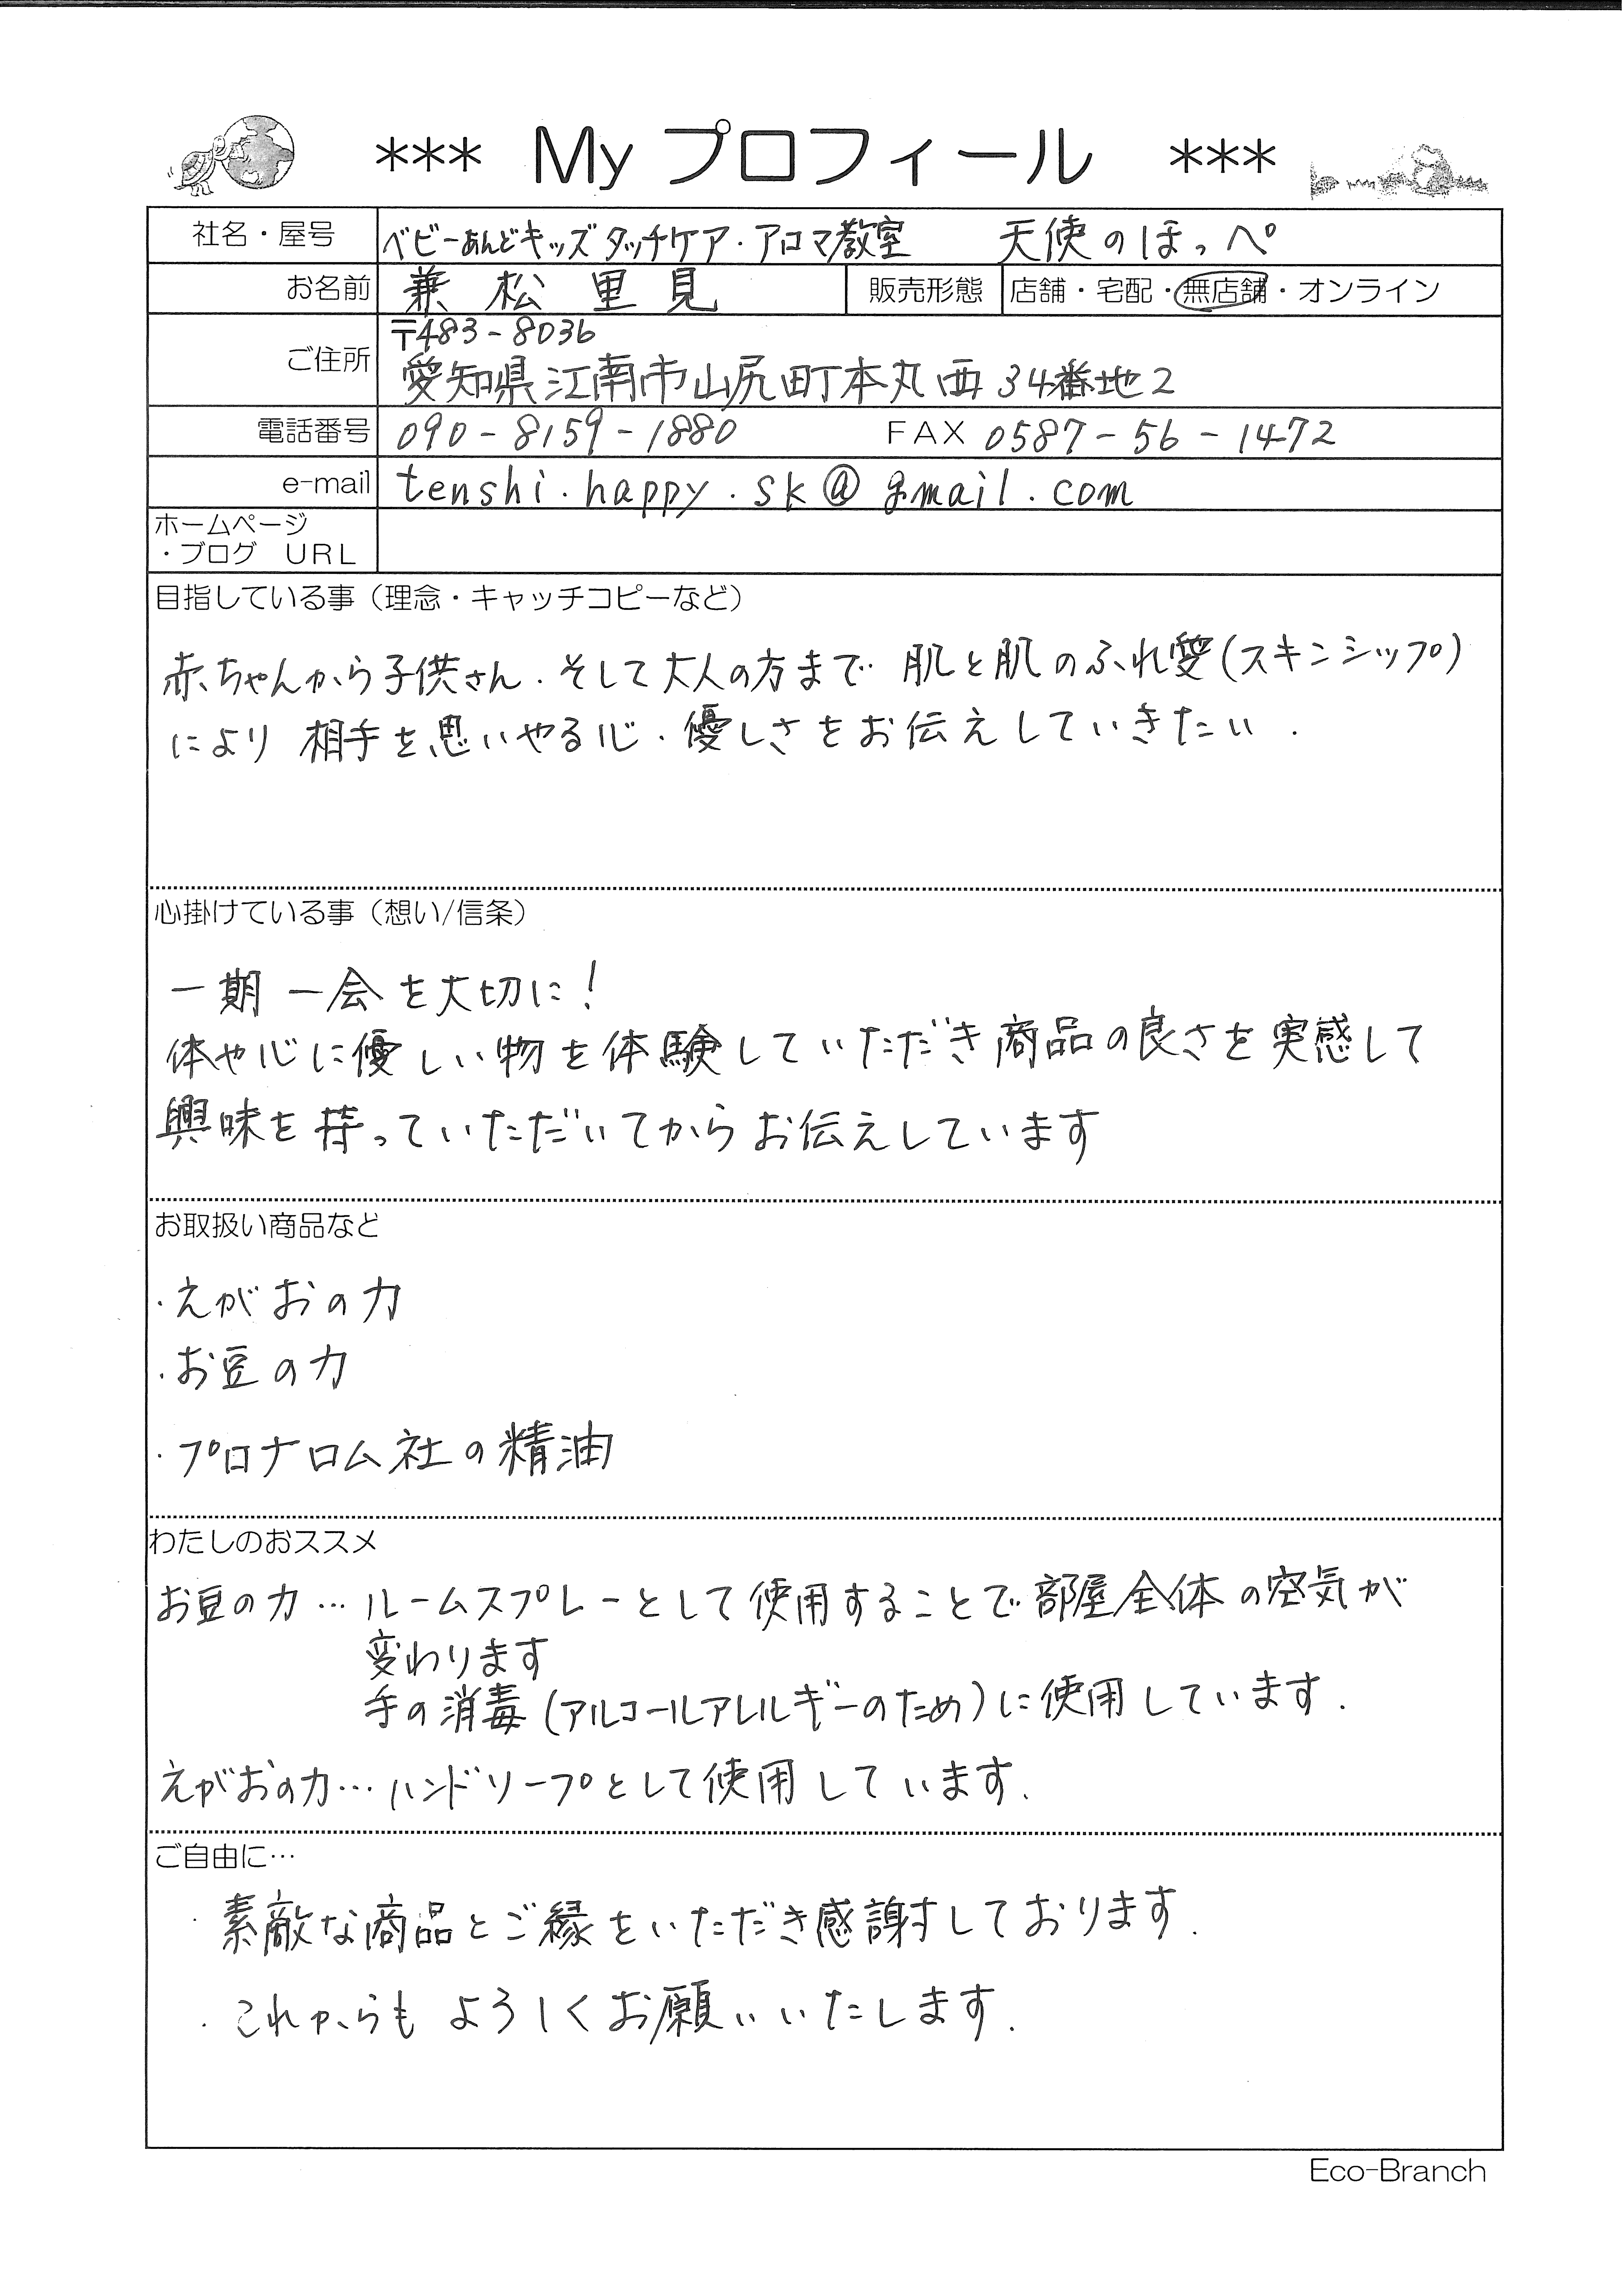 *** My プロフィール ***
社名・屋号 ベビーあんどキッズタッチケア・アロマ教室 天使のほっぺ
お名前 兼松里見 販売形態 店舗・宅配・無店舗・オンライン
ご住所 〒483-8036
愛知県江南市山尻町本丸西34番地2
電話番号 090-8159-1880 FAX 0587-56-1472
e-mail tenshi.happy.sk@gmail.com
ホームページ
・ブログ URL
目指している事（理念・キャッチコピーなど）
赤ちゃんから子供さん.そして大人の方まで 肌と肌のふれ愛(スキンシップ)
により 相手を思いやる心・優しさをお伝えしていきたい.
心掛けている事（想い/信条）
一期一会を大切に!
体や心に優しい物を体験していただき商品の良さを実感して
興味を持っていただいてからお伝えしています
お取扱い商品など
・えがおの力
・お豆の力
・プロナロム社の精油
わたしのおススメ
お豆の力…ルームスプレーとして使用することで部屋全体の空気が
変わります
手の消毒(アルコールアレルギーのため)に使用しています.
えがおの力…ハンドソープとして使用しています.
ご自由に…
・素敵な商品とご縁をいただき感謝しております.
・これからもよろしくお願いいたします.
Eco-Branch